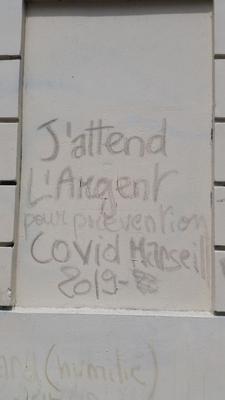 J'attend
L'Argent
pour prévention
Covid Marseill
2019-
(humilié)